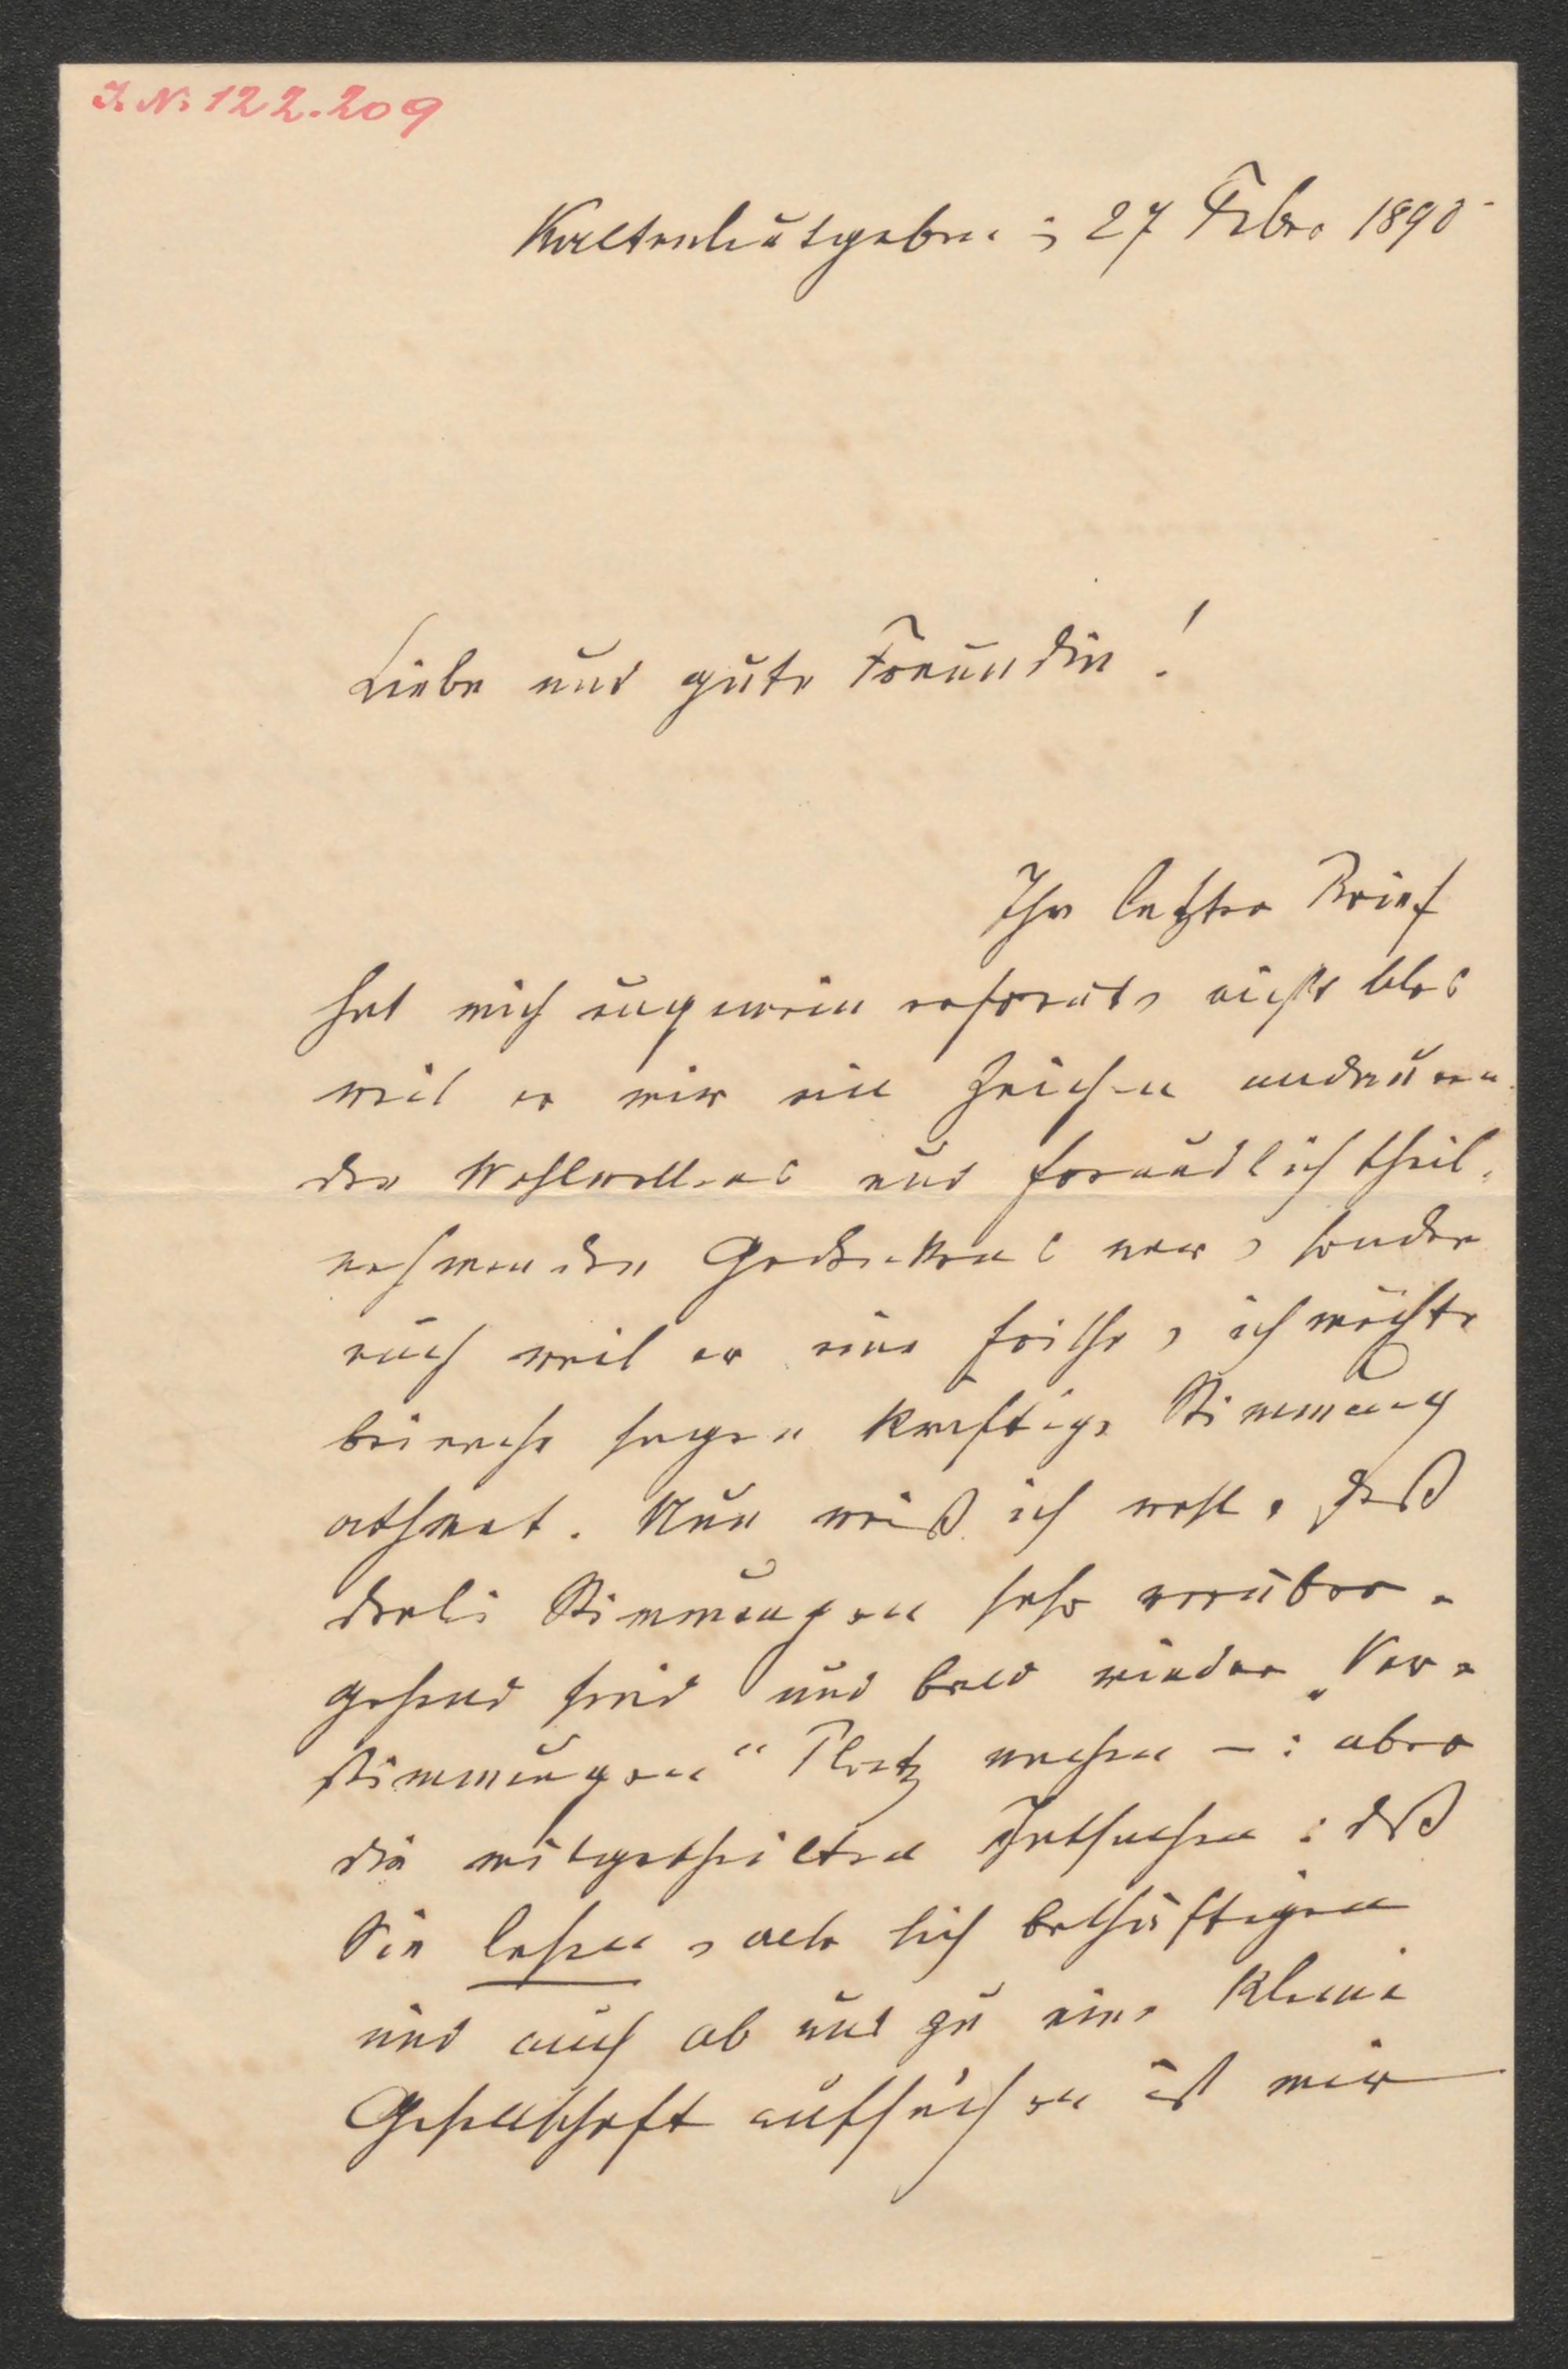 I. N. 122.209
Kaltenleutgeben, 27 Febr. 1890
Liebe und gute Freundin!
Ihr letzter Brief
hat mich ungemein erfreut, nicht blos
weil er mir ein Zeichen andauern-
den Wohlwollens und freundlich theil-
nehmenden Gedenkens war, sondern
auch weil er eine frische, ich möchte
beinahe sagen kräftige Stimmung
athmet. Nun weiß ich wohl, daß
derlei Stimmungen sehr vorüber-
gehend sind und bald wieder „Ver-
stimmungen“ Platz machen –: aber
die mitgetheilten Thatsachen: daß
Sie lesen, also sich beschäftigen
und auch ab und zu eine kleine
Gesellschaft aufsuchen ist mir